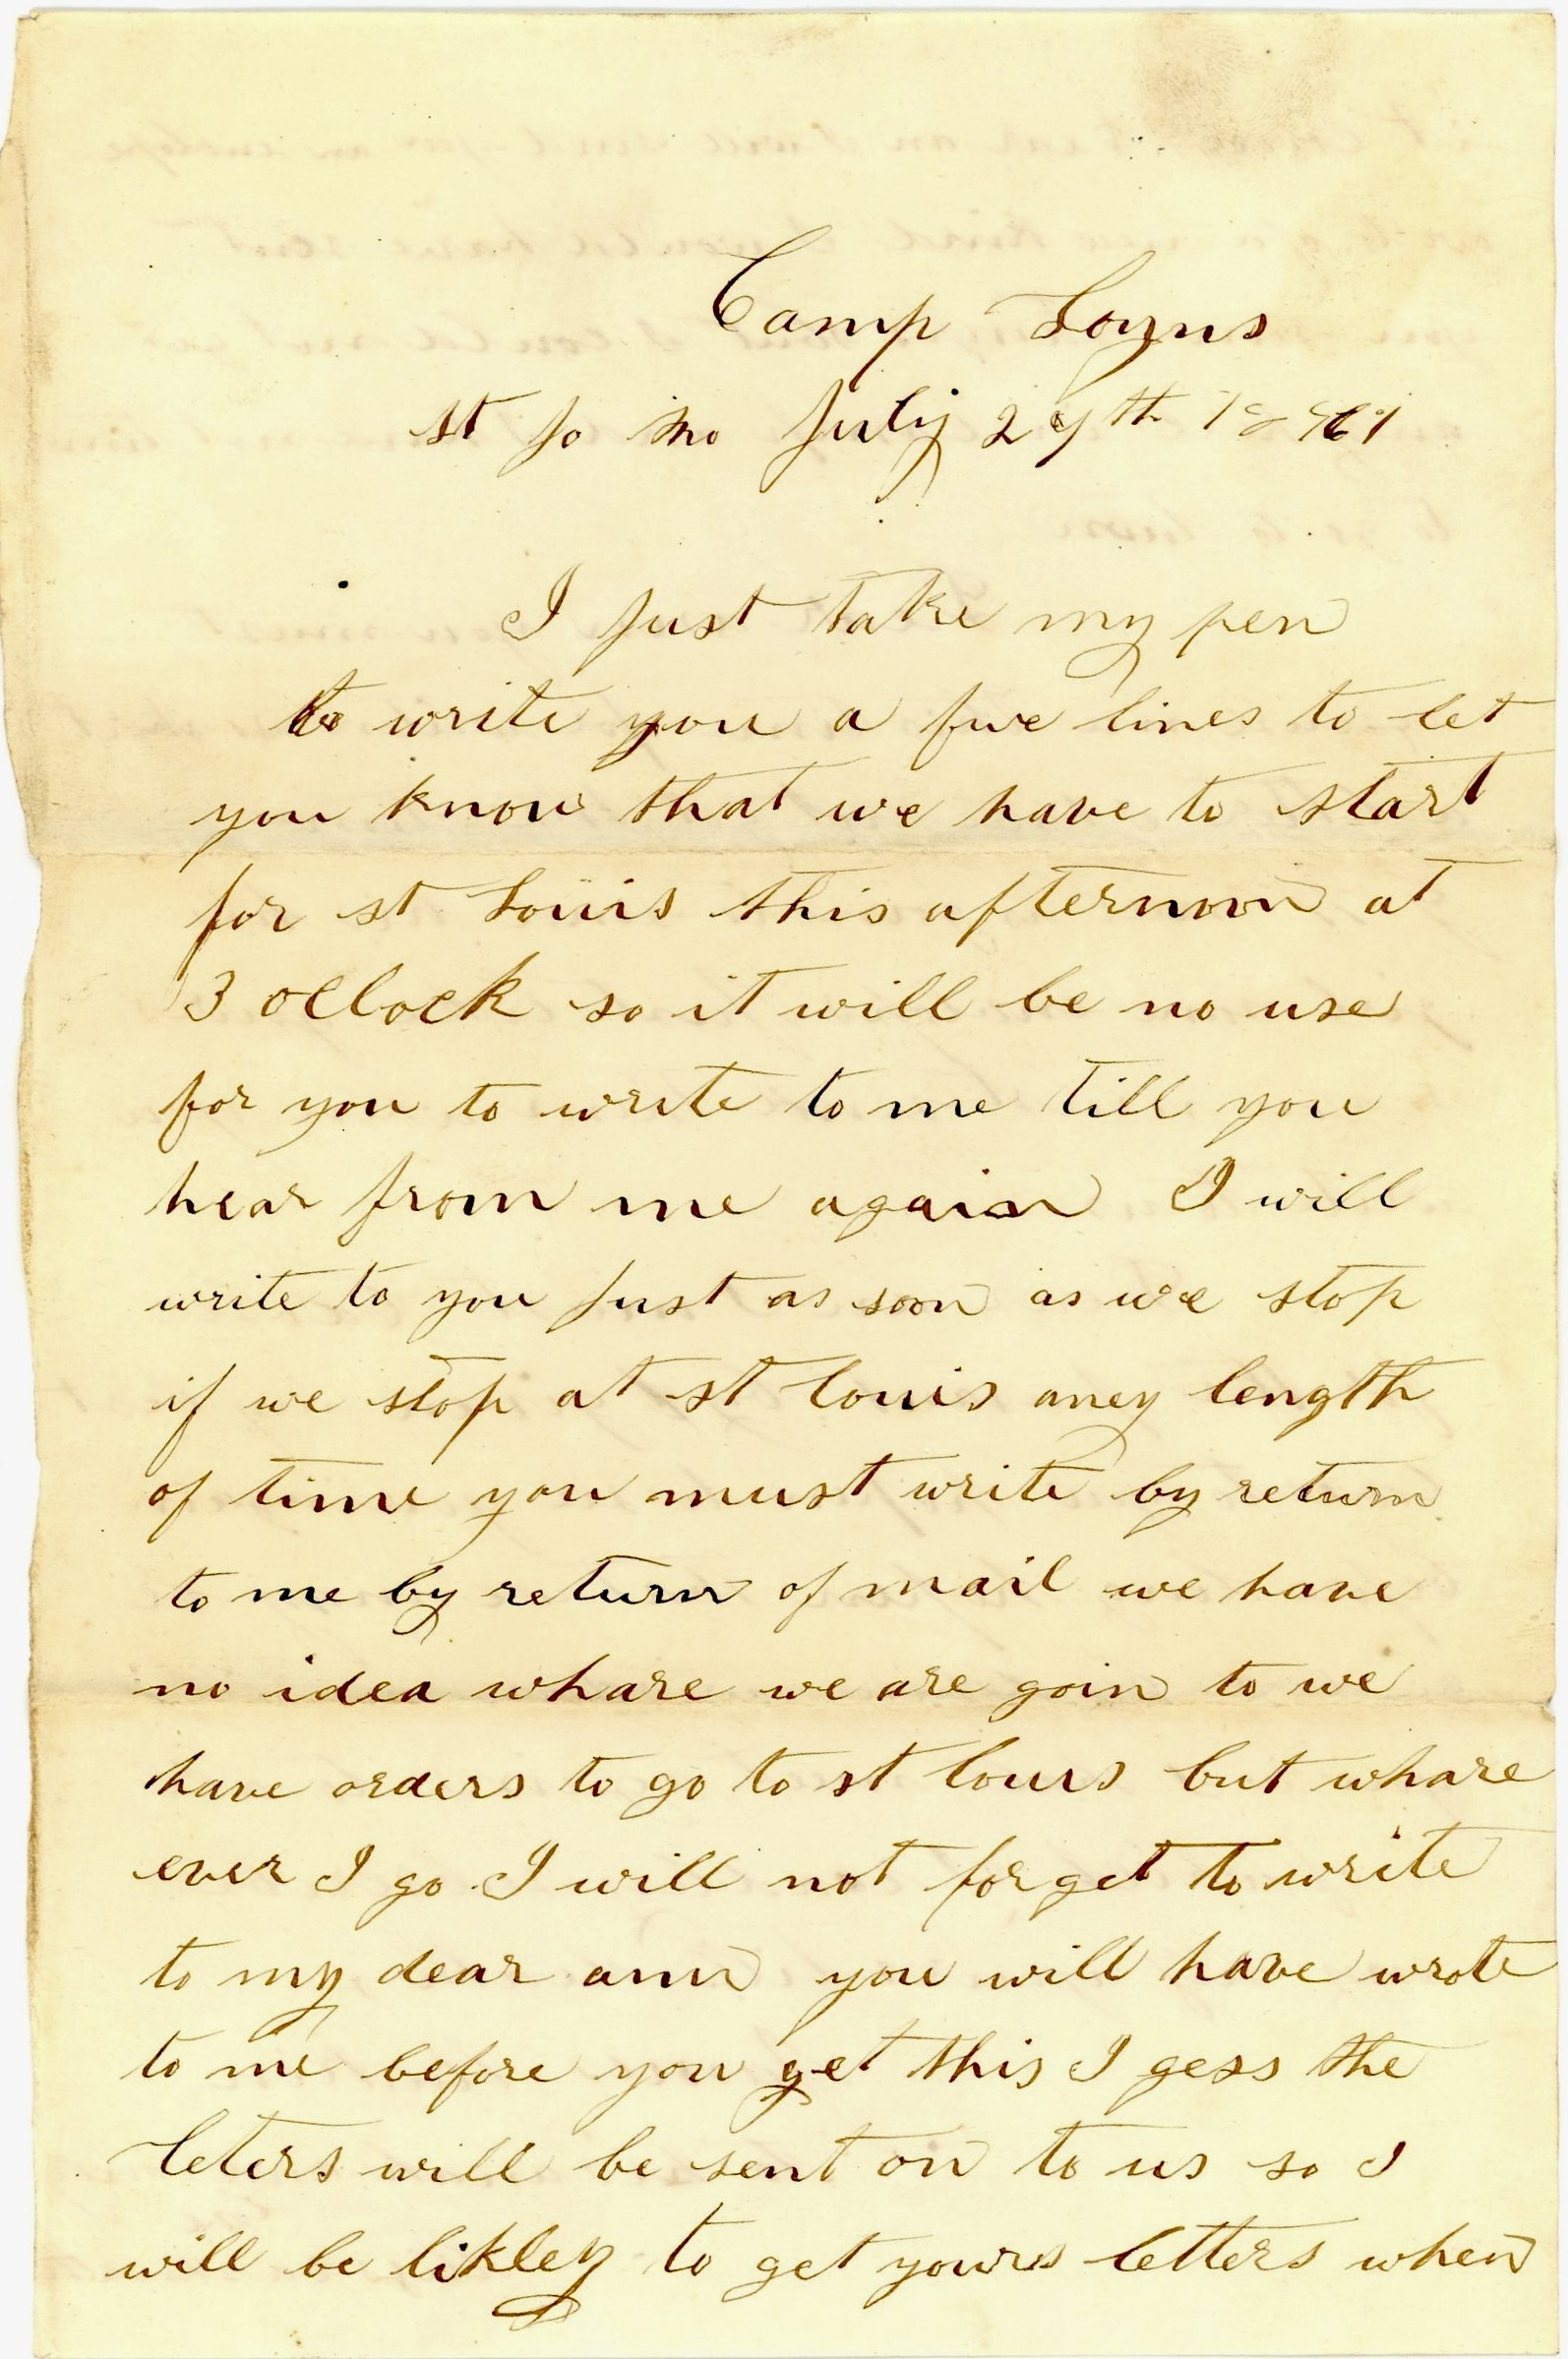 Camp Loyns
st Jo Mo July 29th 1861
I Just take my pen
to write you a fwe lines to let
you know that we have to start
for st Louis this afternoon at
3 oclock so it will be no use
for you to write to me till you
hear from me again I will
write to you Just as soon as we stop
if we stop at st louis aney length
of time you must write by return
to me by return of mail we have
no idea whare we are goin to we
have orders to go to st louis but whare
ever I go I will not forget to write
to my dear ann you will have wrote
to me before you get this I gess the
leters will be sent on to us so I
will be likley to get yours letters when